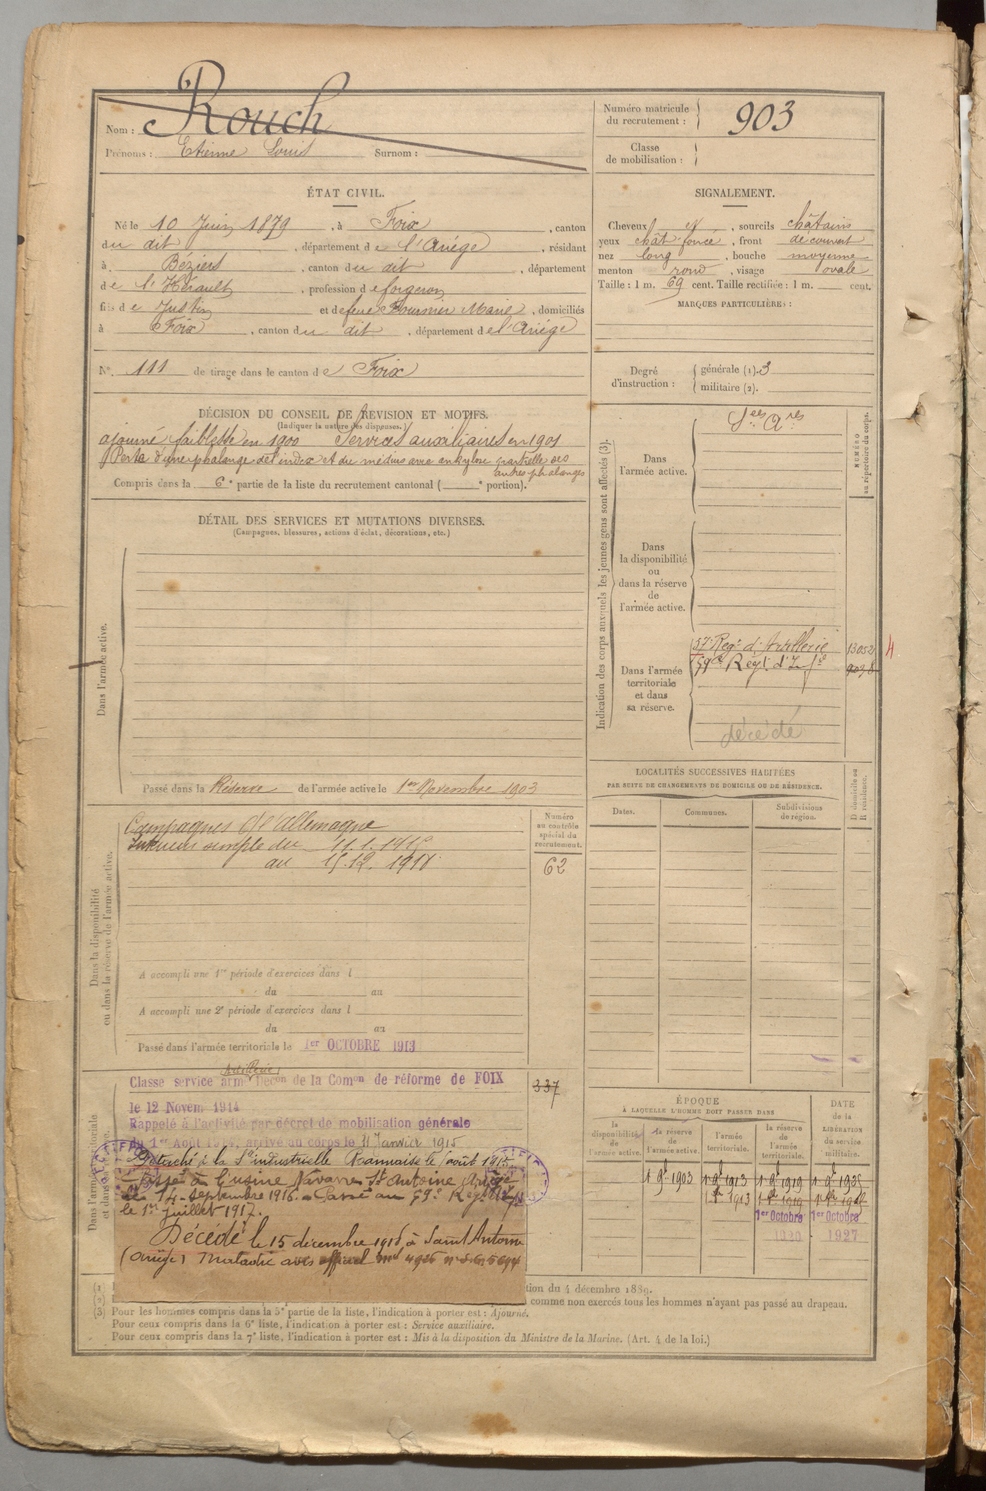 Nom : Rouch
Prénoms : Etienne Louis Surnom :
Numéro matricule du recrutement : 903
Classe de mobilisation :
ÉTAT CIVIL.
Né le 10 Juin 1879, à Foix, canton
du dit, département de l'Ariège, résidant
à Béziers, canton du dit, département
de l'Hérault, profession de forgeron
fils de Justin et de feue Fournier Marie, domiciliés
à Foix, canton du dit, département de l'Ariège
N° 111 de tirage dans le canton de Foix
SIGNALEMENT.
Cheveux et, sourcils châtains
yeux chât foncé, front découvert
nez long, bouche moyenne
menton rond, visage ovale
Taille : 1 m. 69 cent. Taille rectifiée : 1 m. cent.
MARQUES PARTICULIÈRES :
Degré d'instruction : générale (1). 3
militaire (2).
DÉCISION DU CONSEIL DE REVISION ET MOTIFS.
(Indiquer la nature des dispenses.)
ajourné faiblesse en 1900 Services auxiliaires en 1901
Perte d'une phalange de l'index et du médius avec ankylose partielle des
autres phalanges
Compris dans la 6e partie de la liste du recrutement cantonal ( e portion).
DÉTAIL DES SERVICES ET MUTATIONS DIVERSES.
(Campagnes, blessures, actions d'éclat, décorations, etc.)
Dans l'armée active.
Passé dans la Réserve de l'armée active le 1er Novembre 1903
Indication des corps auxquels les jeunes gens sont affectés (3).
NUMÉRO au répertoire du corps.
Dans l'armée active.
Sces Ares
Dans la disponibilité ou dans la réserve de l'armée active.
Dans l'armée territoriale et dans sa réserve.
57e Regt d'Artillerie 13052 4
59e Régt d'Infie
décédé
LOCALITÉS SUCCESSIVES HABITÉES
PAR SUITE DE CHANGEMENTS DE DOMICILE OU DE RÉSIDENCE.
Dates. Communes. Subdivisions de région. D domicile ou R résidence.
Dans la disponibilité ou dans la réserve de l'armée active.
Numéro au contrôle spécial du recrutement.
62
Campagnes Ct l'Allemagne
Intérieur simple du 11.1.1915
au 15.12.1918
A accompli une 1re période d'exercices dans l
du au
A accompli une 2e période d'exercices dans l
du au
Passé dans l'armée territoriale le 1er OCTOBRE 1913
Dans l'armée territoriale et dans
337
Artillerie
Classe service armé Décon de la Comon de réforme de FOIX
le 12 Novem 1914
Rappelé à l'activité par décret de mobilisation générale
du 1er Août 1914, arrivé au corps le 11 Janvier 1915
Détaché à la Sté industrielle Roannaise le août 1915
Passé à l'usine Navarre St Antoine Ariège
le 14 septembre 1916. Passé au 59e Regt
le 1er juillet 1917.
Décédé le 15 décembre 1918 à Saint Antoine
(Ariège) Maladie avis officiel
ÉPOQUE
À LAQUELLE L'HOMME DOIT PASSER DANS
DATE de la LIBÉRATION du service militaire.
la disponibilité de l'armée active. la réserve de l'armée active. l'armée territoriale. la réserve de l'armée territoriale.
1 9e 1903 1 9e 1913 1 9e 1919 1 9e 1925
1er Octobre 1er Octobre
1920 1927
tion du 4 décembre 1889.
comme non exercés tous les hommes n'ayant pas passé au drapeau.
(3) Pour les hommes compris dans la 5e partie de la liste, l'indication à porter est : Ajourné.
Pour ceux compris dans la 6e liste, l'indication à porter est : Service auxiliaire.
Pour ceux compris dans la 7e liste, l'indication à porter est : Mis à la disposition du Ministre de la Marine. (Art. 4 de la loi.)